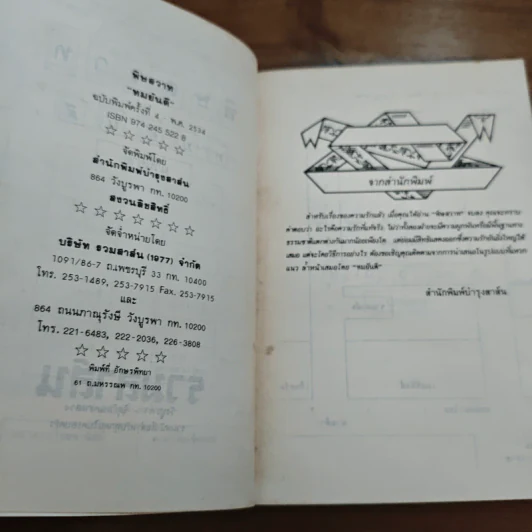 พิษสวาท
"ทมยันตี"
ฉบับพิมพ์ครั้งที่ 4 พ.ศ. 2534
ISBN 974 245 522 8
☆ ☆ ☆ ☆ ☆
จัดพิมพ์โดย
สำนักพิมพ์บำรุงสาส์น
864 วังบูรพา กท. 10200
สงวนลิขสิทธิ์
☆ ☆ ☆ ☆ ☆ ☆
จัดจำหน่ายโดย
บริษัท รวมสาส์น (1977) จำกัด
1091/86-7 ถ.เพชรบุรี 33 กท. 10400
โทร. 253-1489, 253-7915 Fax. 253-7915
และ
864 ถนนภาณุรังษี วังบูรพา กท. 10200
โทร. 221-6483, 222-2036, 226-3808
☆ ☆ ☆ ☆ ☆
พิมพ์ที่ อักษรพิทยา
61 ถ.มหรรณพ กท. 10200
จากสำนักพิมพ์
สำหรับเรื่องของความรักแล้ว เมื่อคุณได้อ่าน "พิษสวาท" จบลง คุณจะทราบ
คำตอบว่า อะไรคือความรักที่แท้จริง
"ทมยันตี"
สำนักพิมพ์บำรุงสาส์น